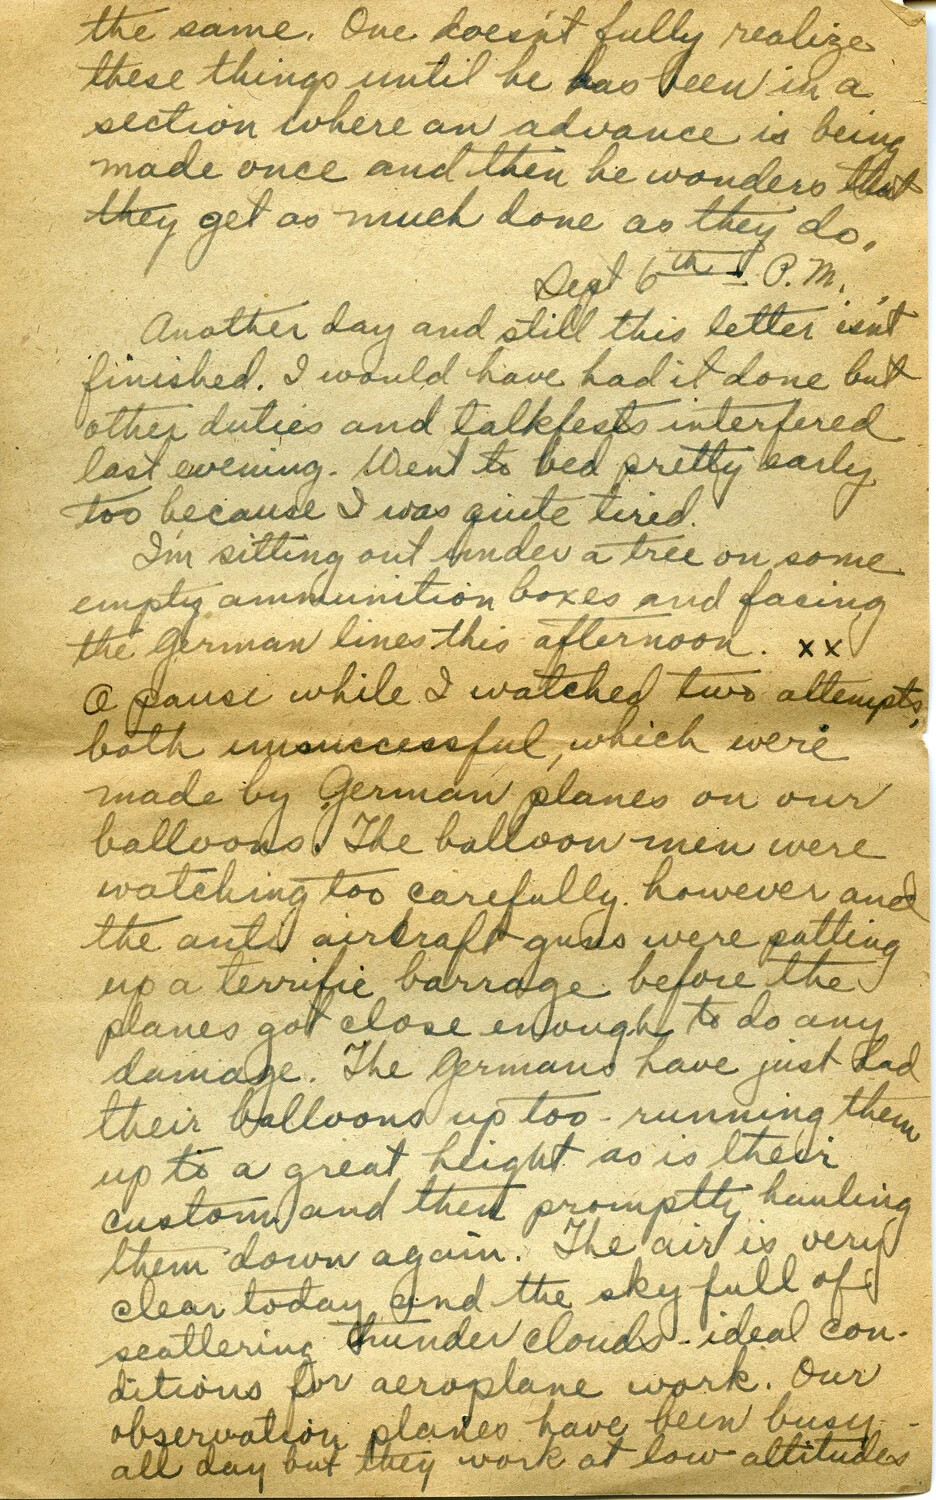 the same. One doesn't fully realize
these things until he has been in a
section where an advance is being
made once and then he wonders that
they get as much done as they do.
Sept 6th - P.M.
Another day and still this letter isn't
finished. I would have had it done but
other duties and talkfests interfered
last evening. Went to bed pretty early
too because I was quite tired.
I'm sitting out under a tree on some
empty ammunition boxes and facing
the German lines this afternoon. xx
A pause while I watched two attempts,
both unsuccessful, which were
made by German planes on our
balloons. The balloon men were
watching too carefully however and
the anti aircraft guns were putting
up a terrific barrage before the
planes got close enough to do any
damage. The Germans have just had
their balloons up too - running them
up to a great height as is their
custom and then promptly hauling
them down again. The air is very
clear today and the sky full of
scattering thunder clouds - ideal con-
ditions for aeroplane work. Our
observation planes have been busy -
all day but they work at low altitudes